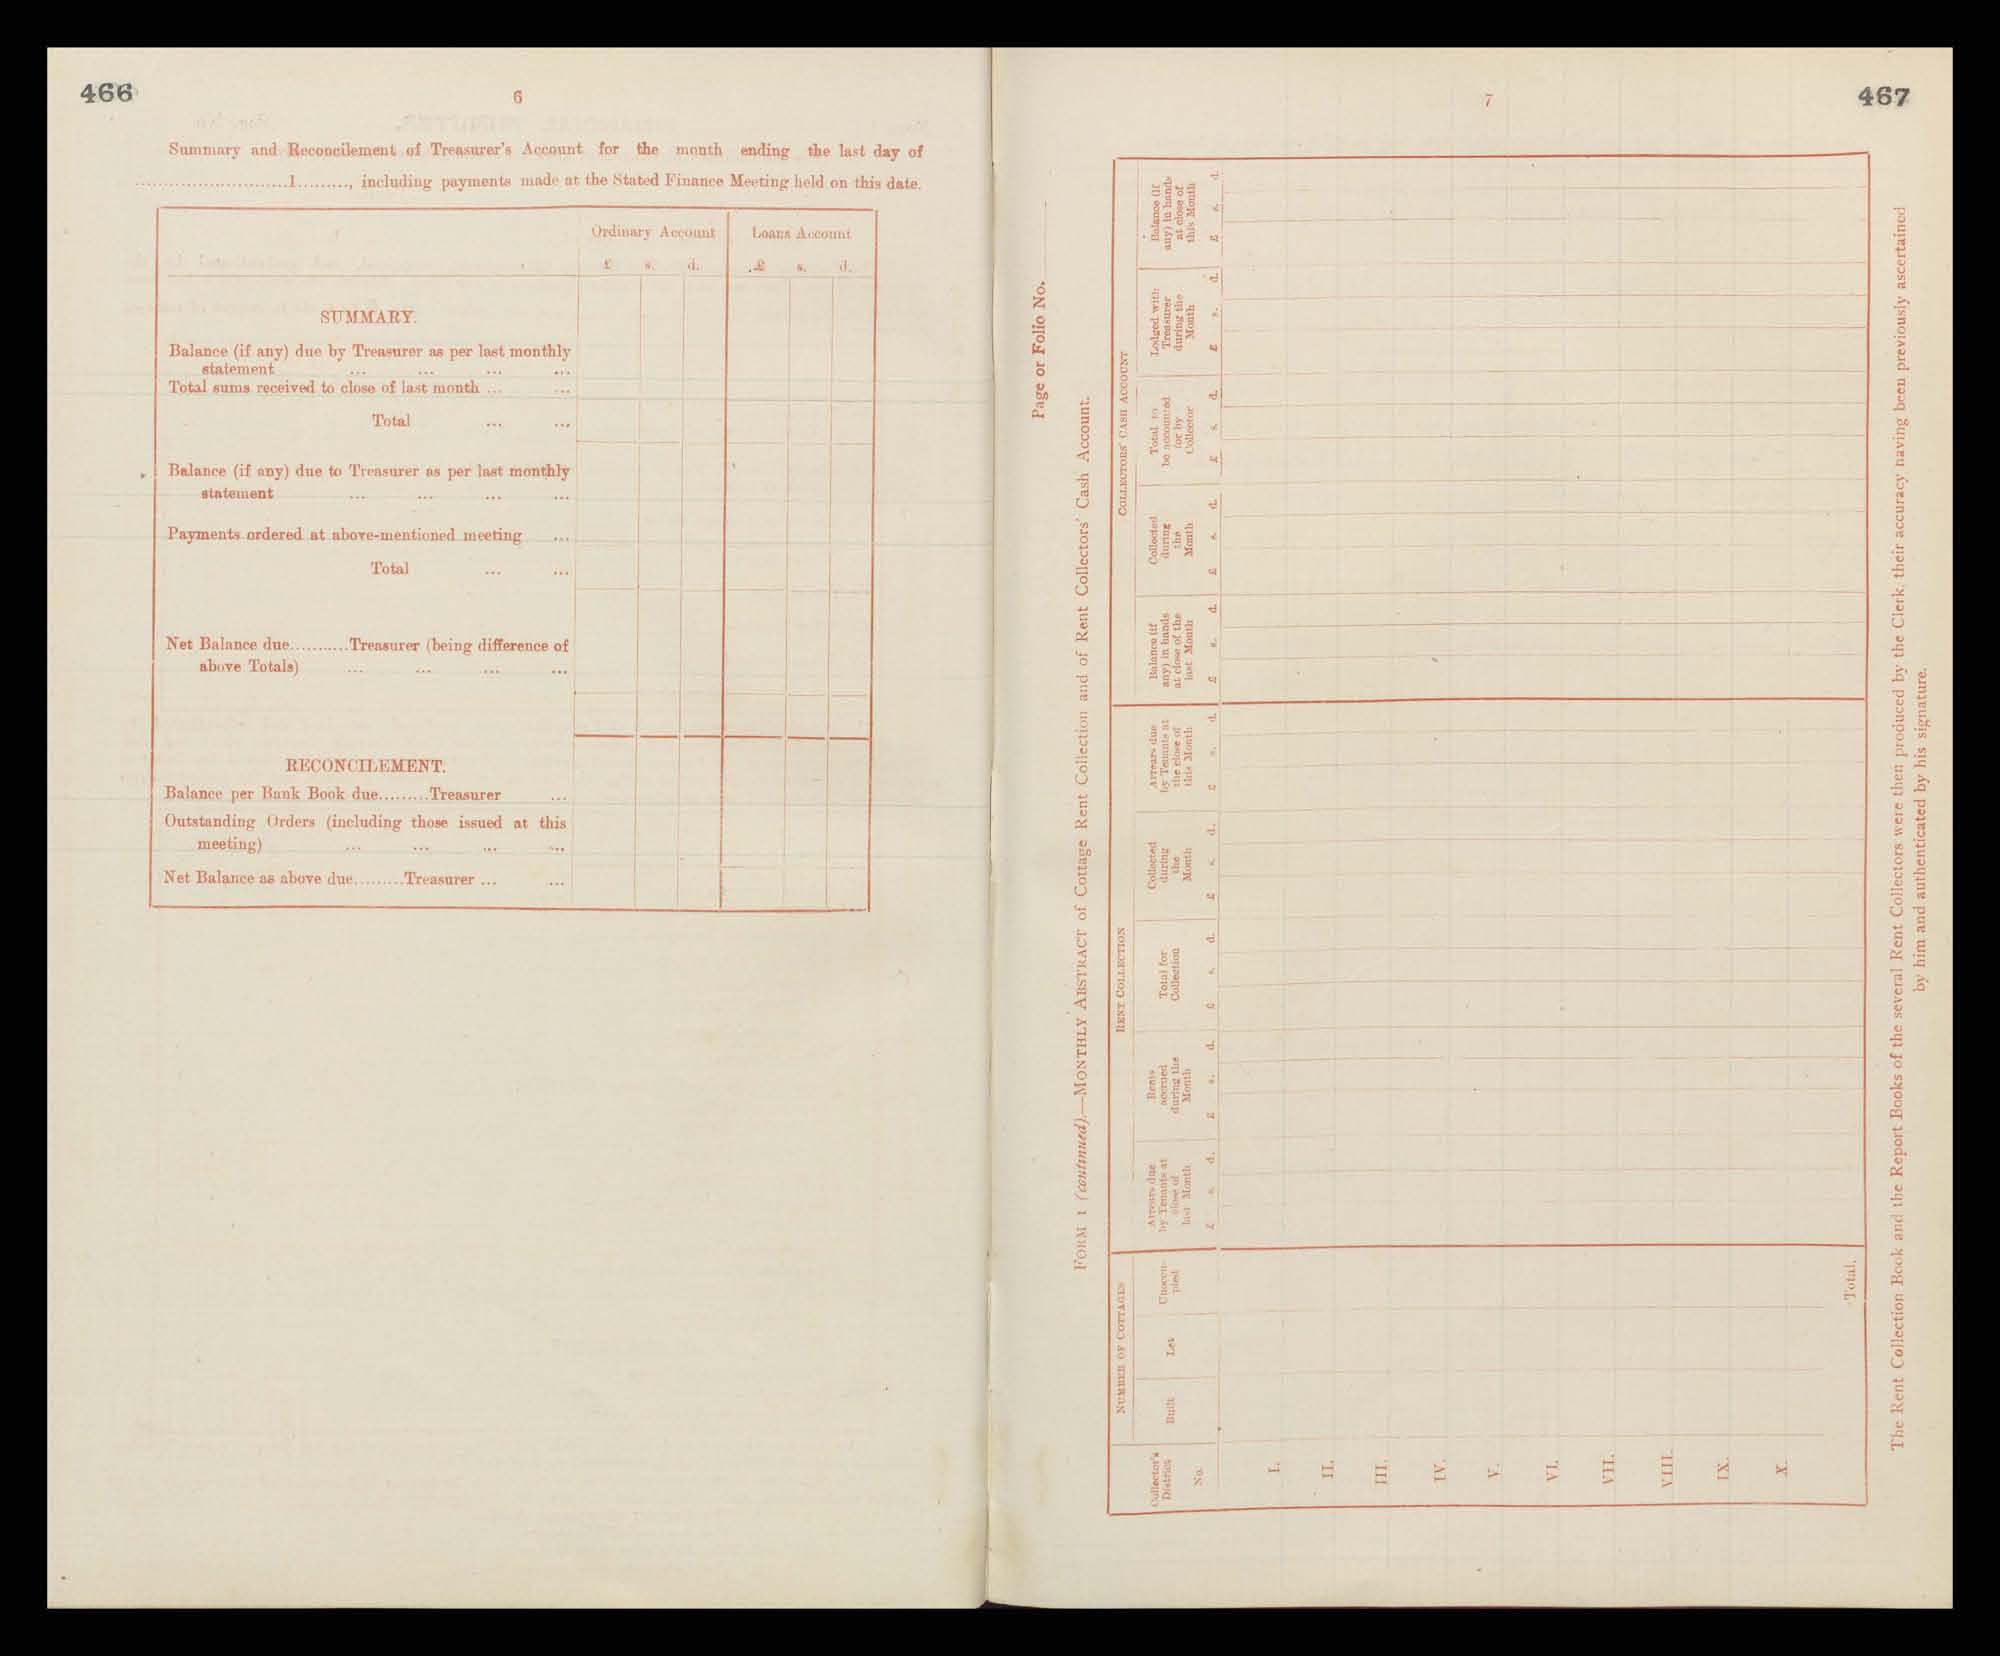 466
6
Summary and Reconcilement of Treasurer's Account for the month ending the last day of
............................1.........., including payments made at the Stated Finance Meeting held on this date.
Ordinary Account
Loans Account
£ s. d.
£ s. d.
SUMMARY.
Balance (if any) due by Treasurer as per last monthly
statement ... ... ... ...
Total sums received to close of last month ... ...
Total ... ...
Balance (if any) due to Treasurer as per last monthly
statement ... ... ... ...
Payments ordered at above-mentioned meeting ...
Total ... ...
Net Balance due...........Treasurer (being difference of
above Totals) ... ... ... ...
RECONCILEMENT.
Balance per Bank Book due.........Treasurer ...
Outstanding Orders (including those issued at this
meeting) ... ... ... ...
Net Balance as above due.........Treasurer ... ...
467
7
Page or Folio No.
FORM 1 (continued).—MONTHLY ABSTRACT of Cottage Rent Collection and of Rent Collectors' Cash Account.
NUMBER OF COTTAGES
RENT COLLECTION
COLLECTORS' CASH ACCOUNT
Collector's
District
No.
Built
Let
Unoccu-
pied
Arrears due
by Tenants at
close of
last Month
£ s. d.
Rents
accrued
during the
Month
£ s. d.
Total for
Collection
£ s. d.
Collected
during
the
Month
£ s. d.
Arrears due
by Tenants at
the close of
this Month
£ s. d.
Balance (if
any) in hands
at close of the
last Month
£ s. d.
Collected
during
the
Month
£ s. d.
Total to
be accounted
for by
Collector
£ s. d.
Lodged with
Treasurer
during the
Month
£ s. d.
Balance (if
any) in hands
at close of
this Month
£ s. d.
I.
II.
III.
IV.
V.
VI.
VII.
VIII.
IX.
X.
Total.
The Rent Collection Book and the Report Books of the several Rent Collectors were then produced by the Clerk, their accuracy having been previously ascertained
by him and authenticated by his signature.